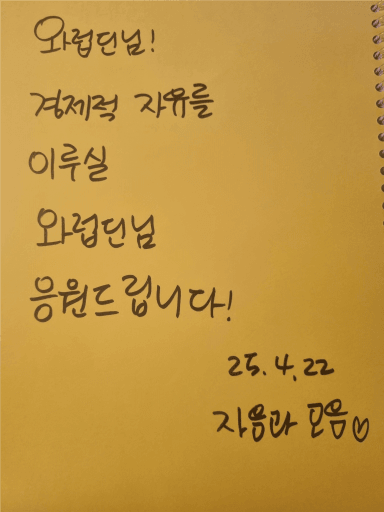 와럽딘님!
경제적 자유를
이루실
와럽딘님
응원드립니다!
25.4.22
자음과 모음♡